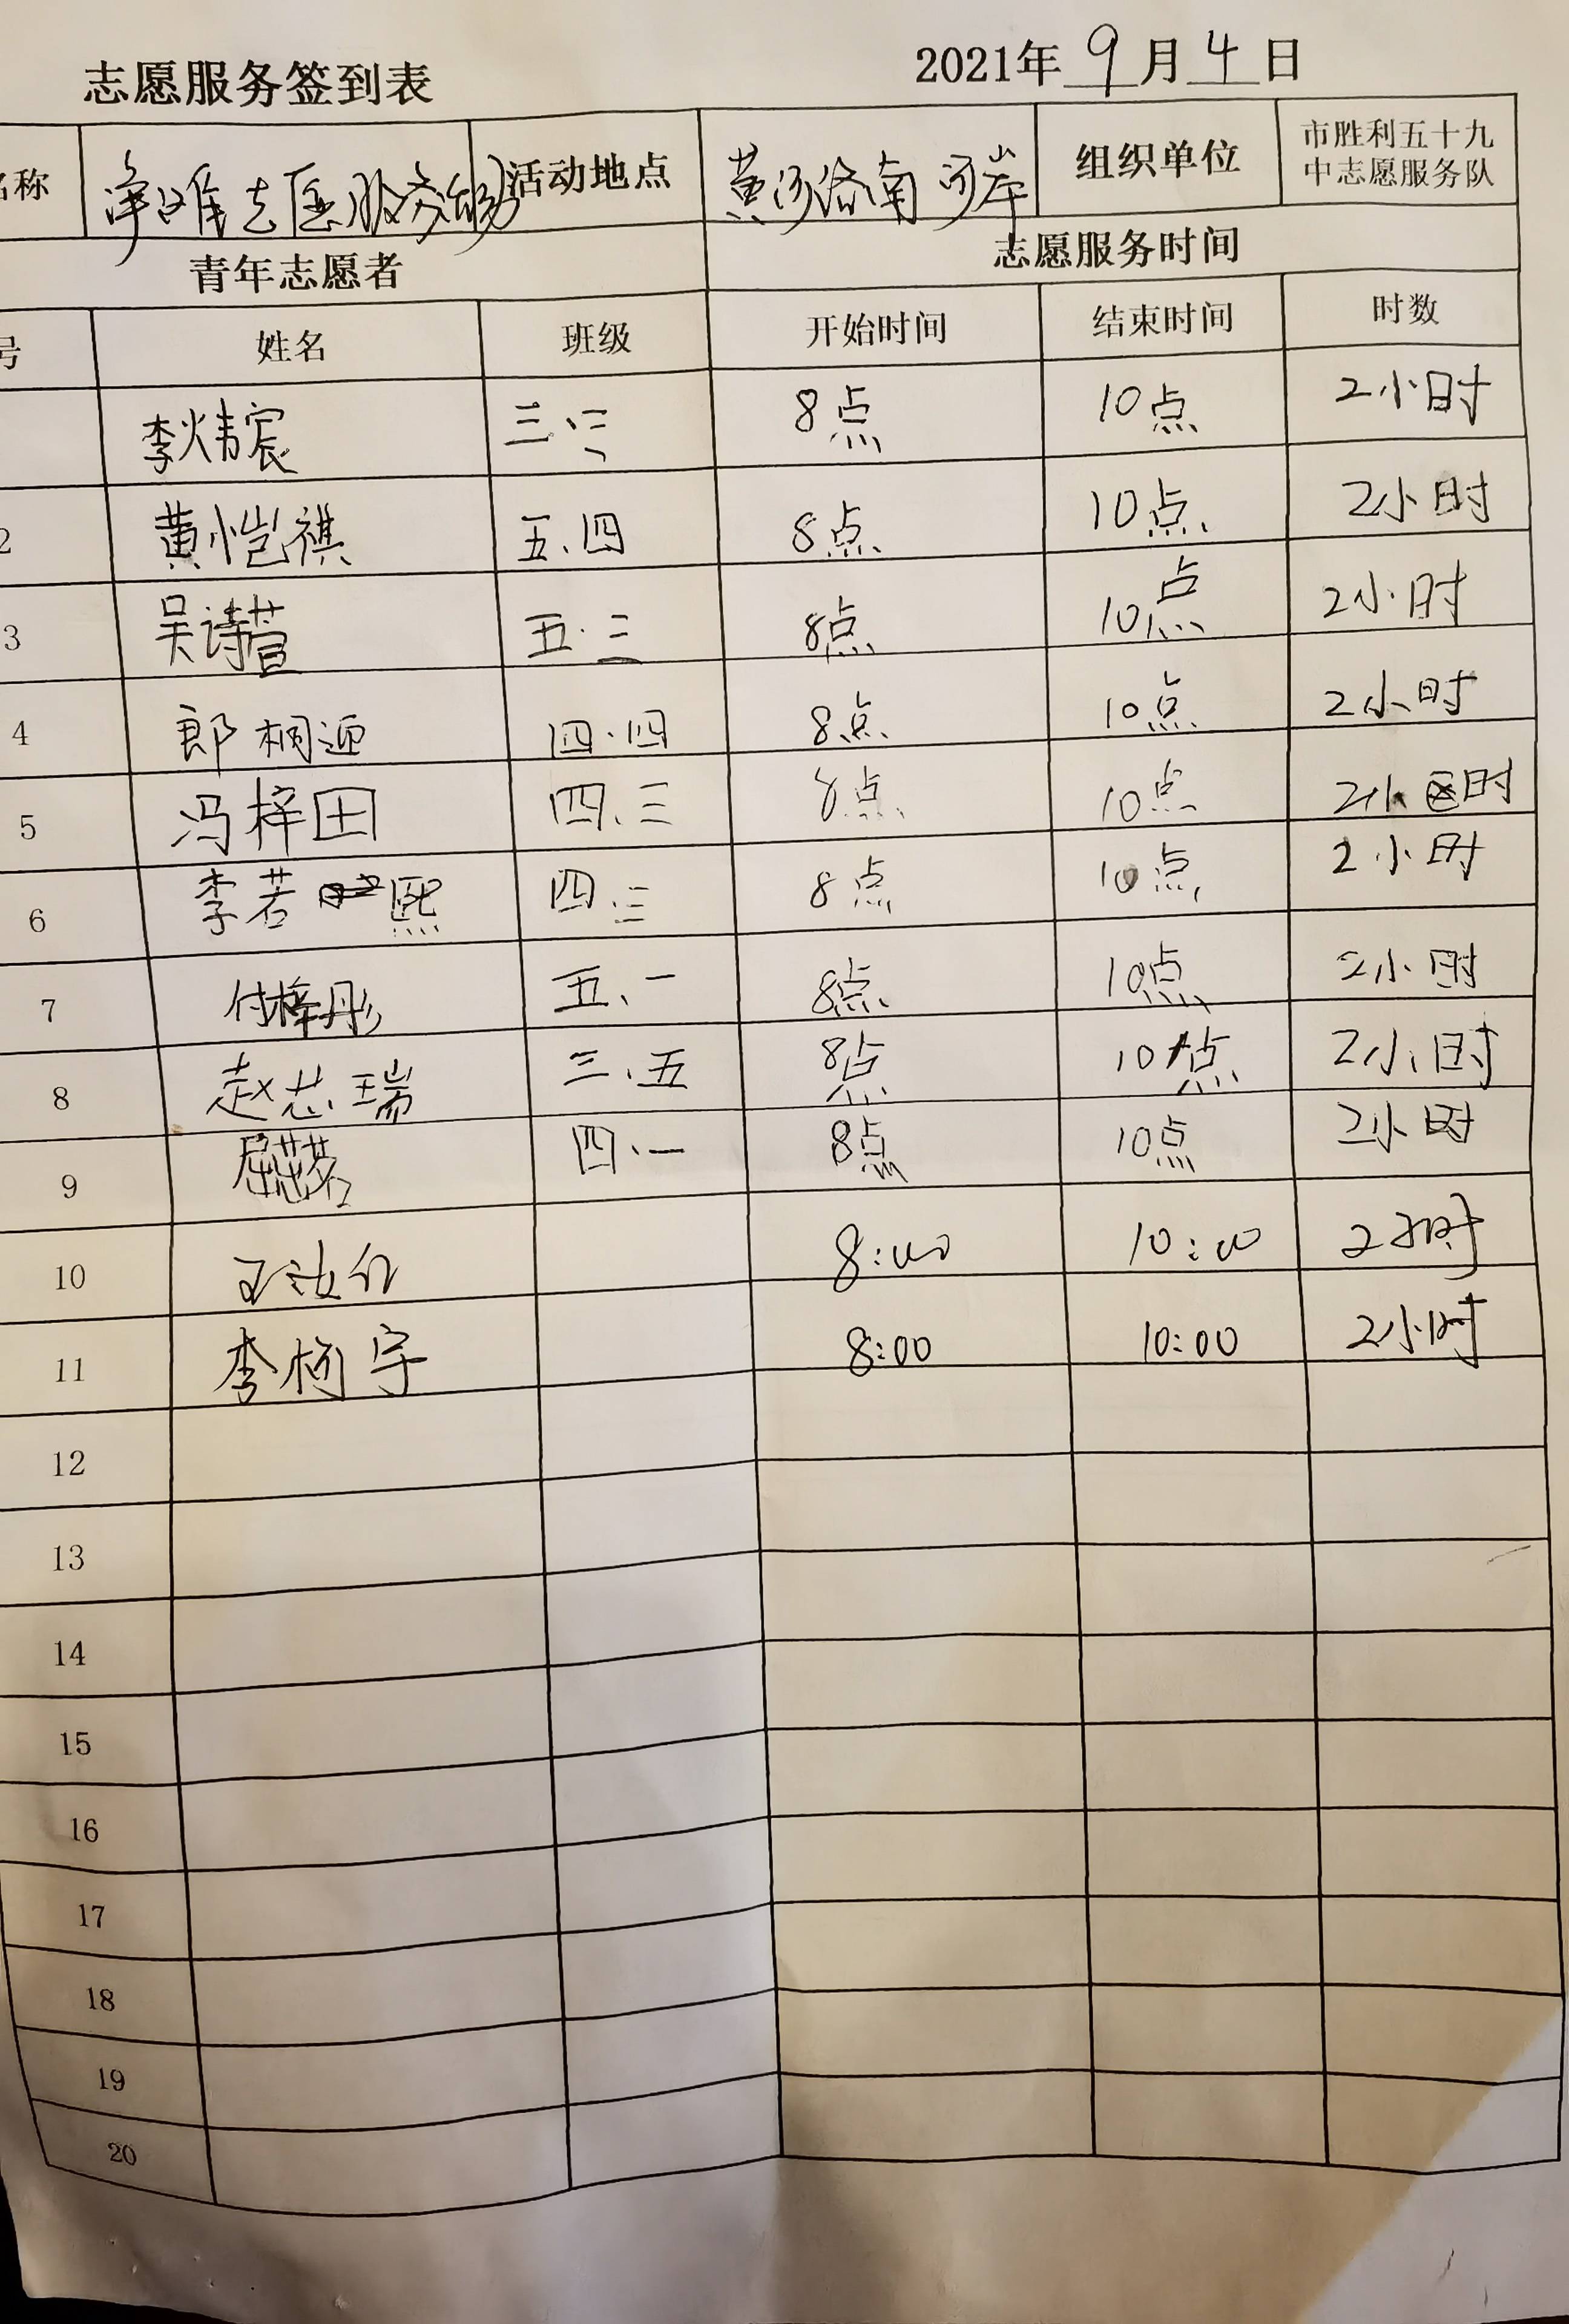 志愿服务签到表 2021年9月4日
名称 净滩志愿服务活动 活动地点 黄河济南河岸 组织单位 市胜利五十九中志愿服务队
青年志愿者 志愿服务时间
号 姓名 班级 开始时间 结束时间 时数
李炜宸 三.三 8点 10点 2小时
2 黄恺祺 五.四 8点 10点 2小时
3 吴诗萱 五.三 8点 10点 2小时
4 郎桐迎 四.四 8点 10点 2小时
5 冯梓田 四.三 8点 10点 2小时
6 李若熙 四.三 8点 10点 2小时
7 付梓彤 五.一 8点 10点 2小时
8 赵芯瑞 三.五 8点 10点 2小时
9 四.一 8点 10点 2小时
10 8:00 10:00 2小时
11 李柯宇 8:00 10:00 2小时
12
13
14
15
16
17
18
19
20